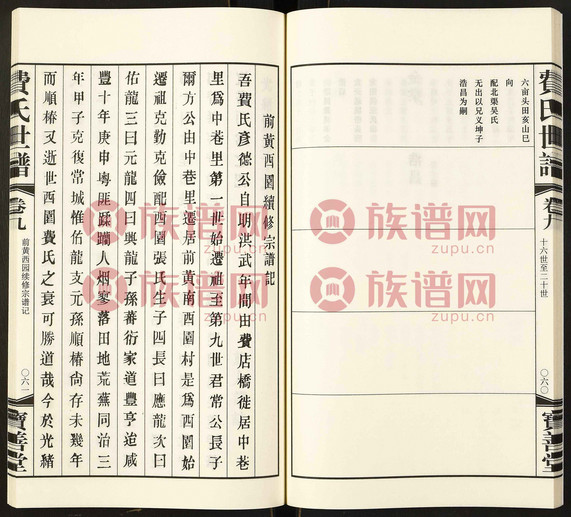 費氏世譜
卷九
十六世至二十世
〇六〇
寶善堂
六亩头田亥山巳
向
配北渠吴氏
无出以兄义坤子
浩昌为嗣
前黄西園續修宗譜記
吾費氏彦德公自明洪武年間由費店橋徙居中巷
里為中巷里第一世始遷祖至第九世君常公長子
爾方公由中巷里遷居前黄南西園村是為西園始
遷祖克勤克儉配西園張氏生子四長曰應龍次曰
佑龍三曰元龍四曰興龍子孫蕃衍家道豐亨迨咸
豐十年庚申粤匪蹂躪人烟寥落田地荒蕪同治三
年甲子克復常城惟佑龍支元孫順椿尚存未幾年
而順椿又逝世西園費氏之衰可勝道哉今於光緒
費氏世譜
卷九
前黄西园续修宗谱记
〇六一
寶善堂
族谱网
zupu.cn
族谱网
zupu.cn
族谱网
zupu.cn
族谱网
zupu.cn